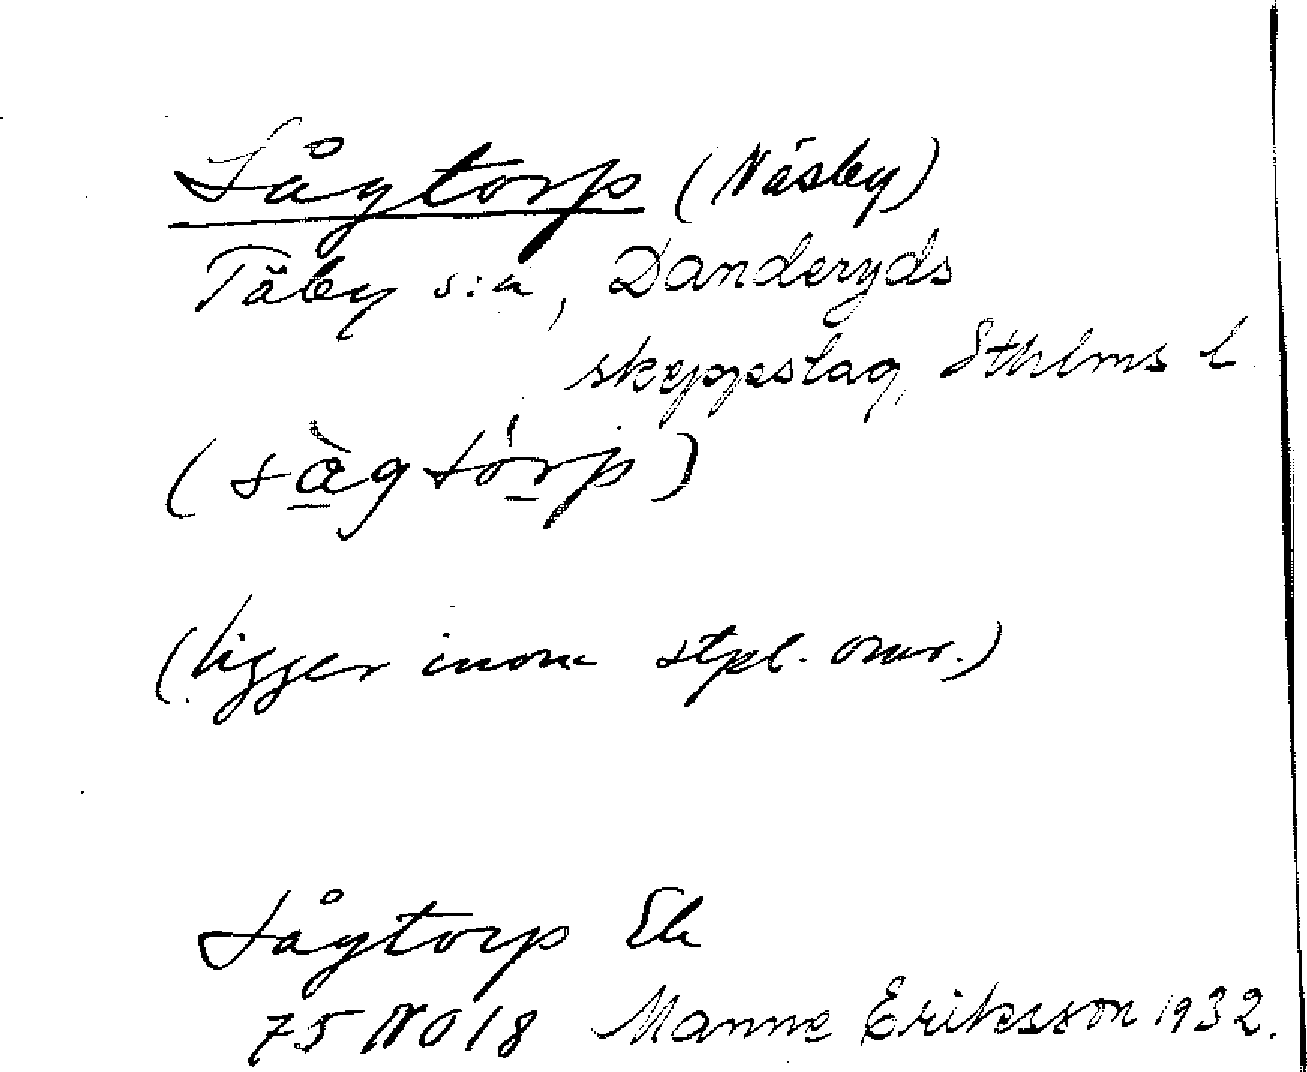 Sågtorp (Näsby)
Täby s:n, Danderyds
skeppslag, Sthlms l
(sàgtórp)
(ligger inom stpl. omr.)
Sågtorp Ek
75 NO 18 Manne Eriksson 1932.